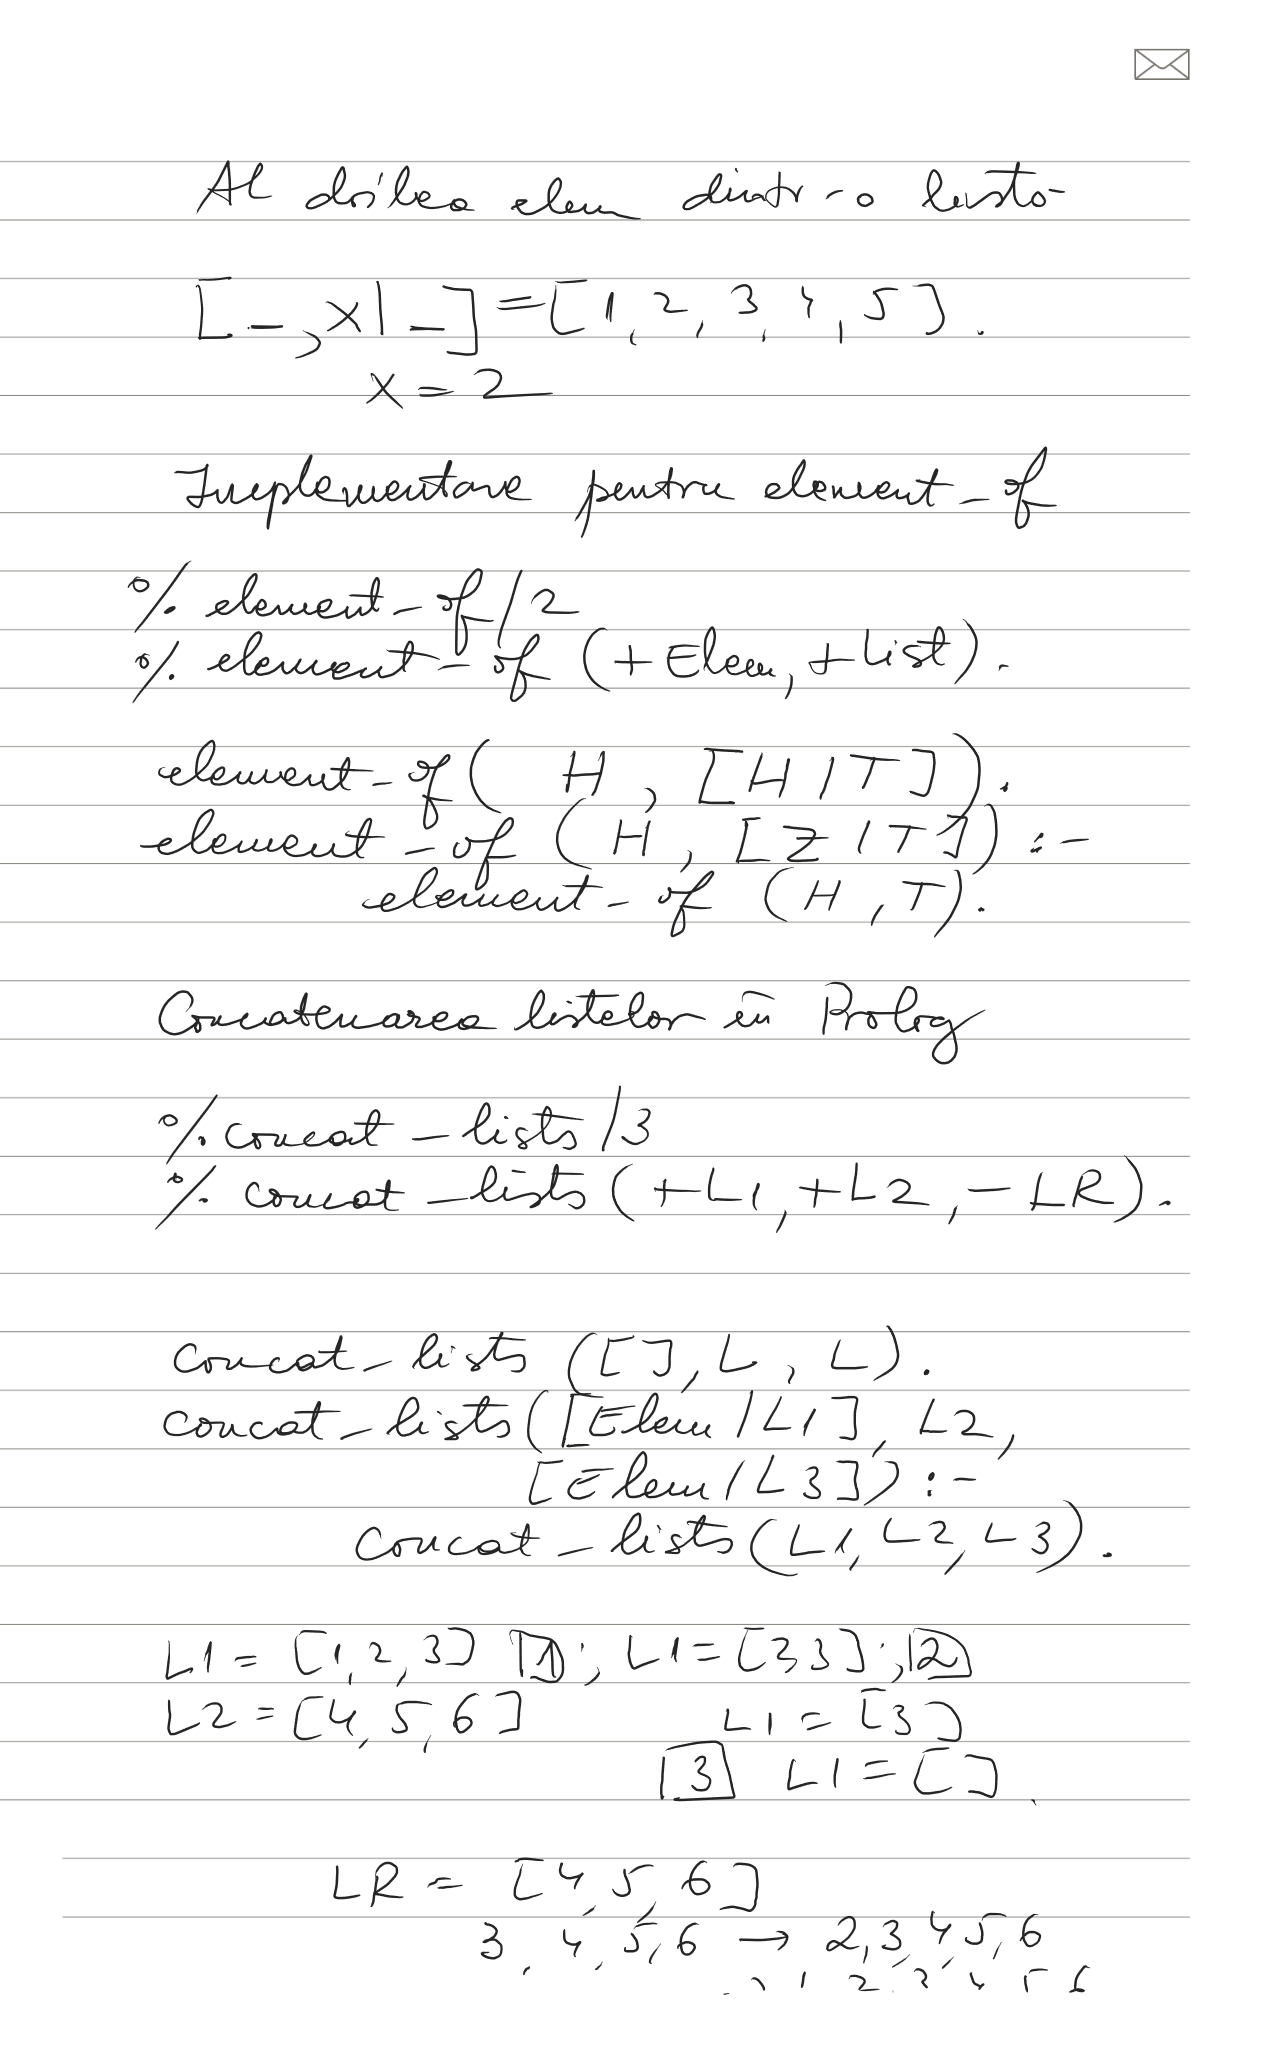 Al doilea elem dintr-o listă
[_, X|_] = [1, 2, 3, 4, 5].
X = 2
Implementare pentru element_of
% element_of/2
% element_of (+Elem, +List).
element_of( H, [H|T]).
element_of (H, [Z|T]) :-
element_of (H, T).
Concatenarea listelor în Prolog
% concat_lists/3
% concat_lists (+L1, +L2, -LR).
concat_lists ([], L, L).
concat_lists([Elem|L1], L2,
[Elem|L3]) :-
concat_lists(L1, L2, L3).
L1 = [1, 2, 3] 1; L1 = [2 3]; 2
L2 = [4, 5, 6] L1 = [3]
3 L1 = [].
LR = [4, 5, 6]
3, 4, 5, 6 → 2, 3, 4, 5, 6
→ 1 2, 3, 4 5 6